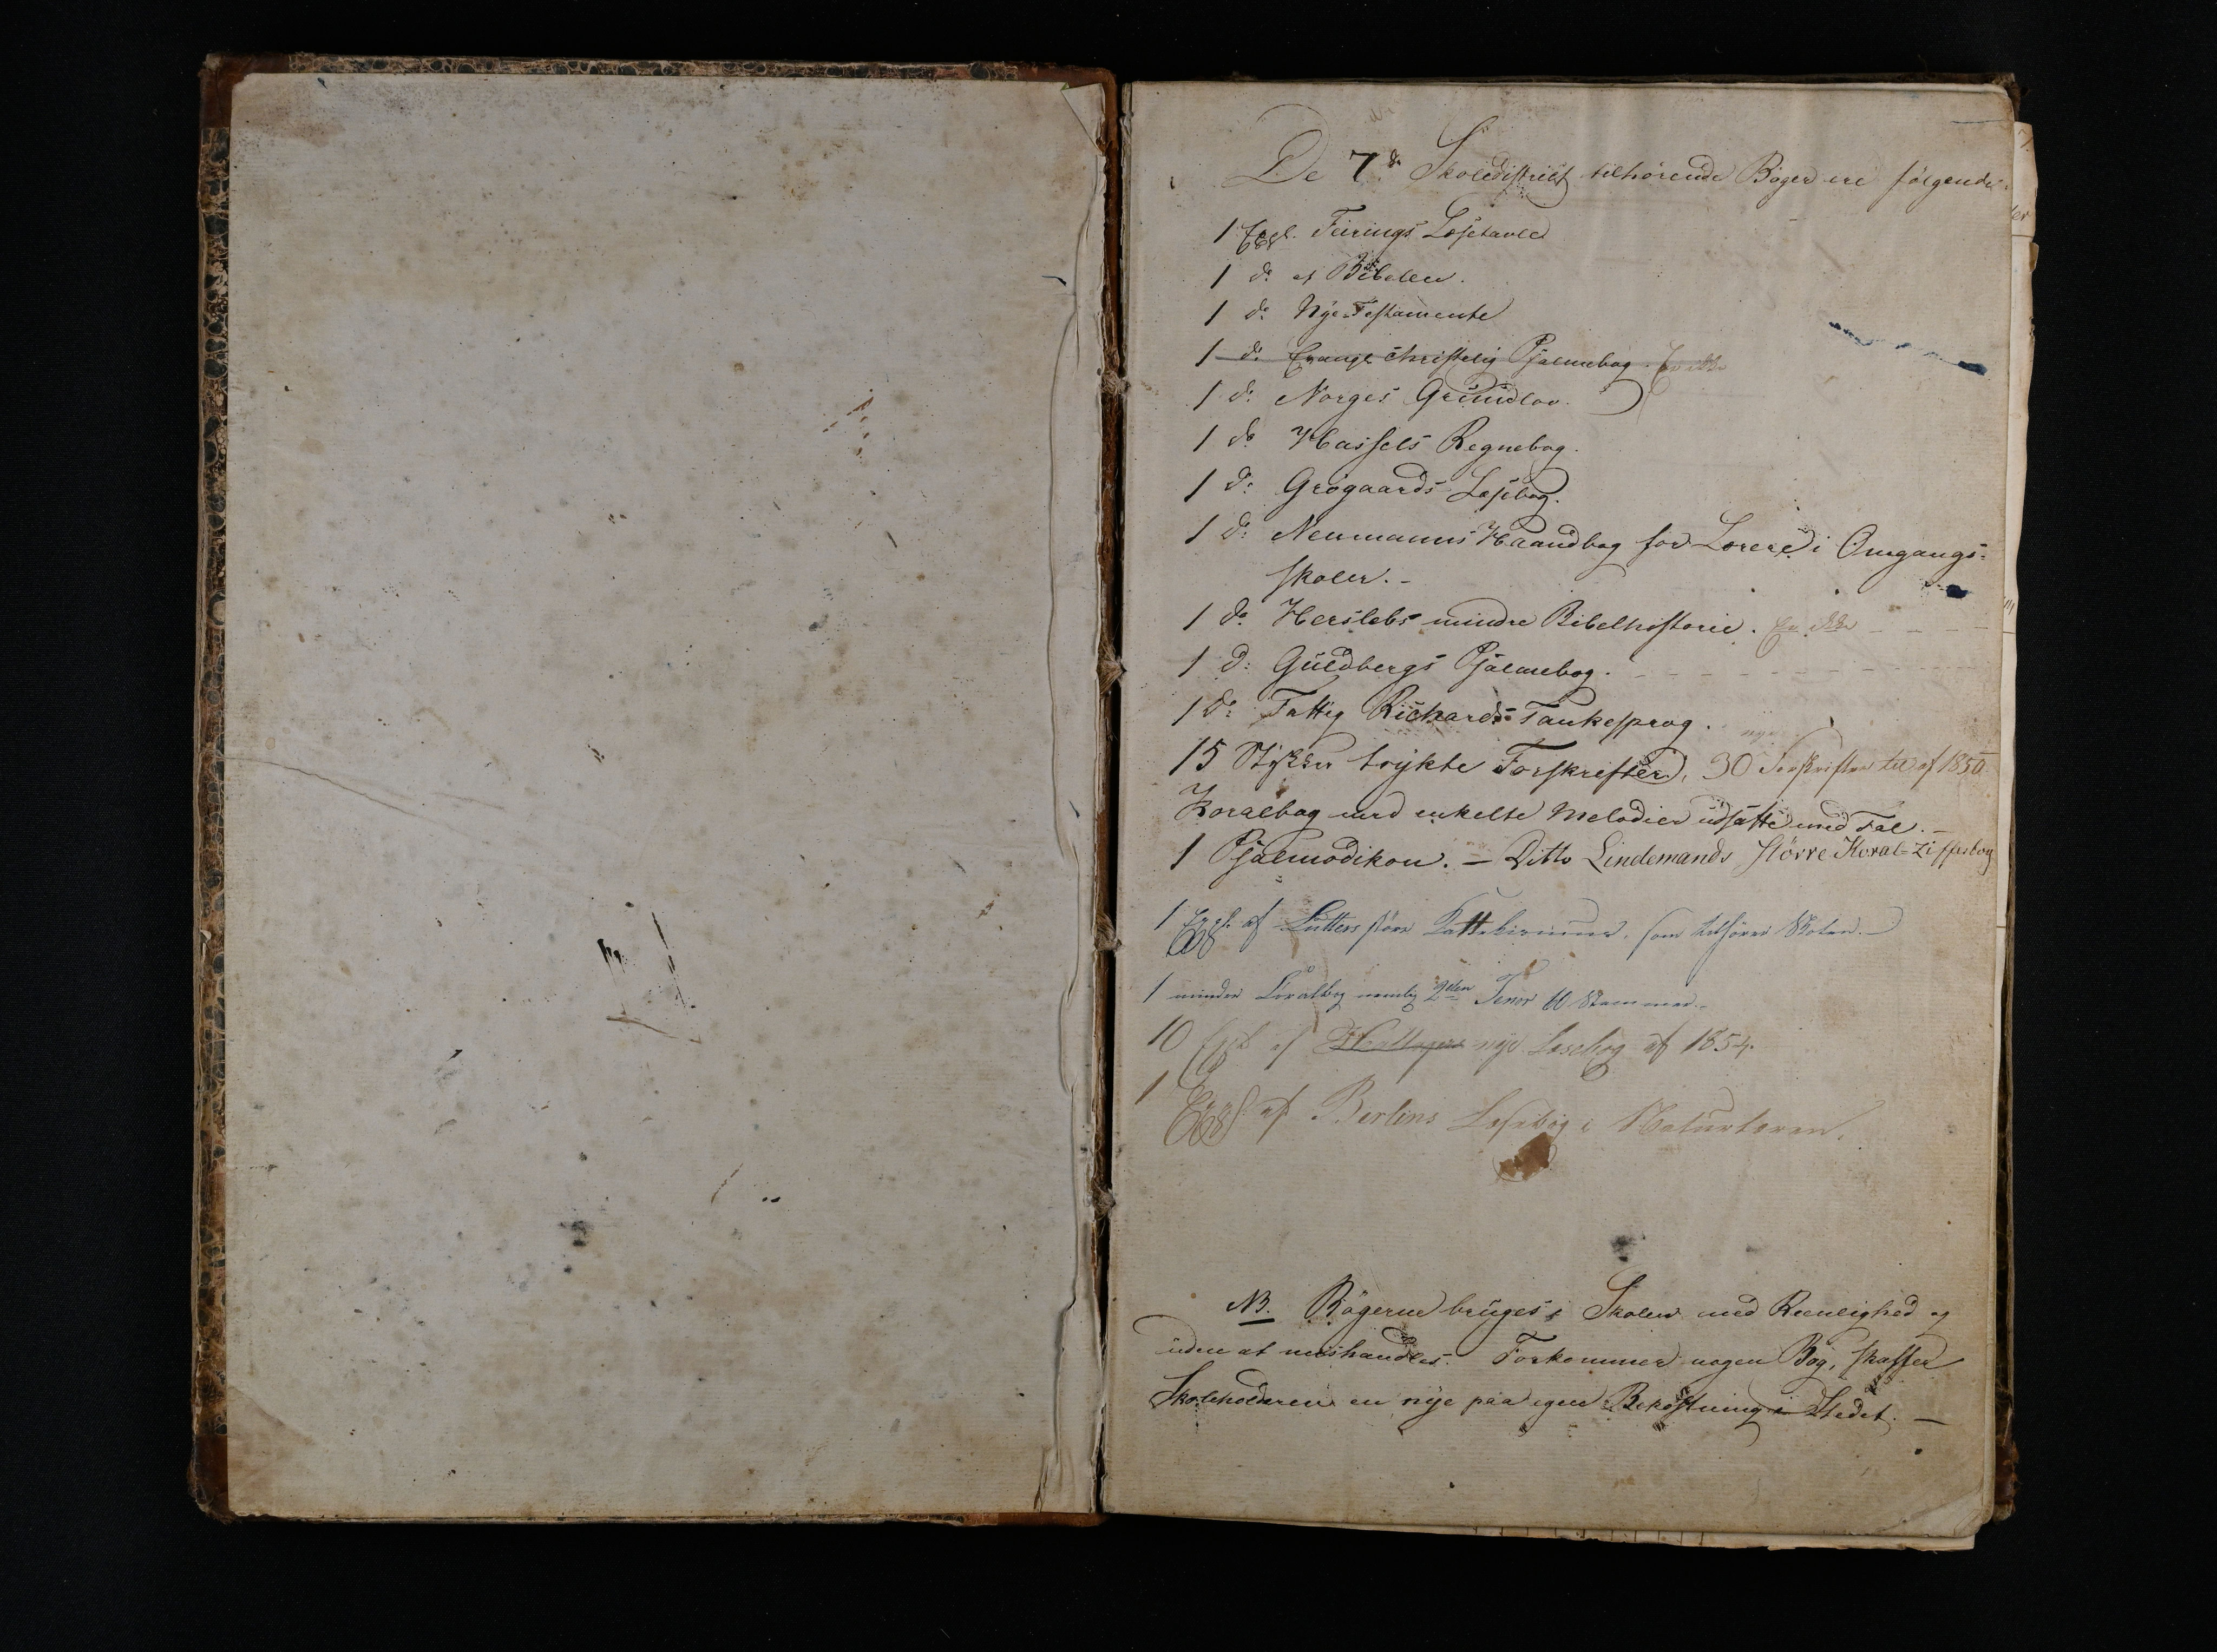 De 7de Skoledistrict tilhörende Böger ere fölgende:
1 Expl. Feirings Læsetavler
1 do af Bibelen.
1 do Nye-Testamente
1 do Evangl christelig Psalmebog. Er ikke
1 do Norges Grundlov.
1 do Hassels Regnebog.
1 do Grögaards Læsebog.
1 do Neumanns Haandbog for Lærere i Omgangs-
skoler. -
1 do Herslebs mindre Bibelhistorie. Er ikke
1 do Guldbergs Psalmebog.
1 do Fattig Richards Tankesprog.
15 Stykker trykte Forskrifter, 30 Forskrifter til af 1850
Koralbog med enkelte Melodier udsatte med Tal. -
1 Psalmodikon. - Ditto Lindemands större Koral-Zifferbog
1 Expl. af Lutters störe Kattekismus, som tilhörer Skolen. -
1 mindre Koralbog nemlig 2den Tenor til Stemmer. -
10 Expl af nye Læsebog af 1854.
1 Expl af Berlins Læsebog i Naturlæren.
NB. Bögerne bruges i Skolen med Reenlighed og
uden at mishandles. Forkommer nogen Bog, skaffer
Skoleholderen en nye paa egen Bekostning i Stedet. -